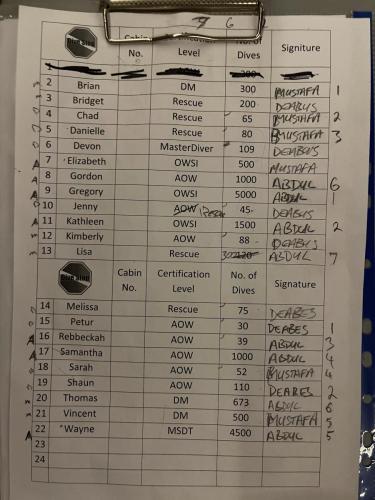 6
Cabin No. Certification Level No. of Dives Signiture
2 Brian DM 300 MUSTAFA 1
3 Bridget Rescue 200 DEABUS
4 Chad Rescue 65 MUSTAFA 2
5 Danielle Rescue 80 MUSTAFA 3
6 Devon MasterDiver 109 DEABUS
A 7 Elizabeth OWSI 500 MUSTAFA
A 8 Gordon AOW 1000 ABDUL 6
A 9 Gregory OWSI 5000 ABDUL 1
10 Jenny AOW 45 DEABUS
A 11 Kathleen OWSI 1500 ABDUL 2
12 Kimberly AOW 88 DEABUS
A 13 Lisa Rescue ABDUL 7
Cabin No. Certification Level No. of Dives Signature
14 Melissa Rescue 75 DEABES
15 Petur AOW 30 DEABES 1
A 16 Rebbeckah AOW 39 ABDUL 3
A 17 Samantha AOW 1000 ABDUL 4
18 Sarah AOW 52 MUSTAFA 4
19 Shaun AOW 110 DEABES 2
20 Thomas DM 673 ABDUL 6
21 Vincent DM 500 MUSTAFA 5
A 22 Wayne MSDT 4500 ABDUL 5
23
24